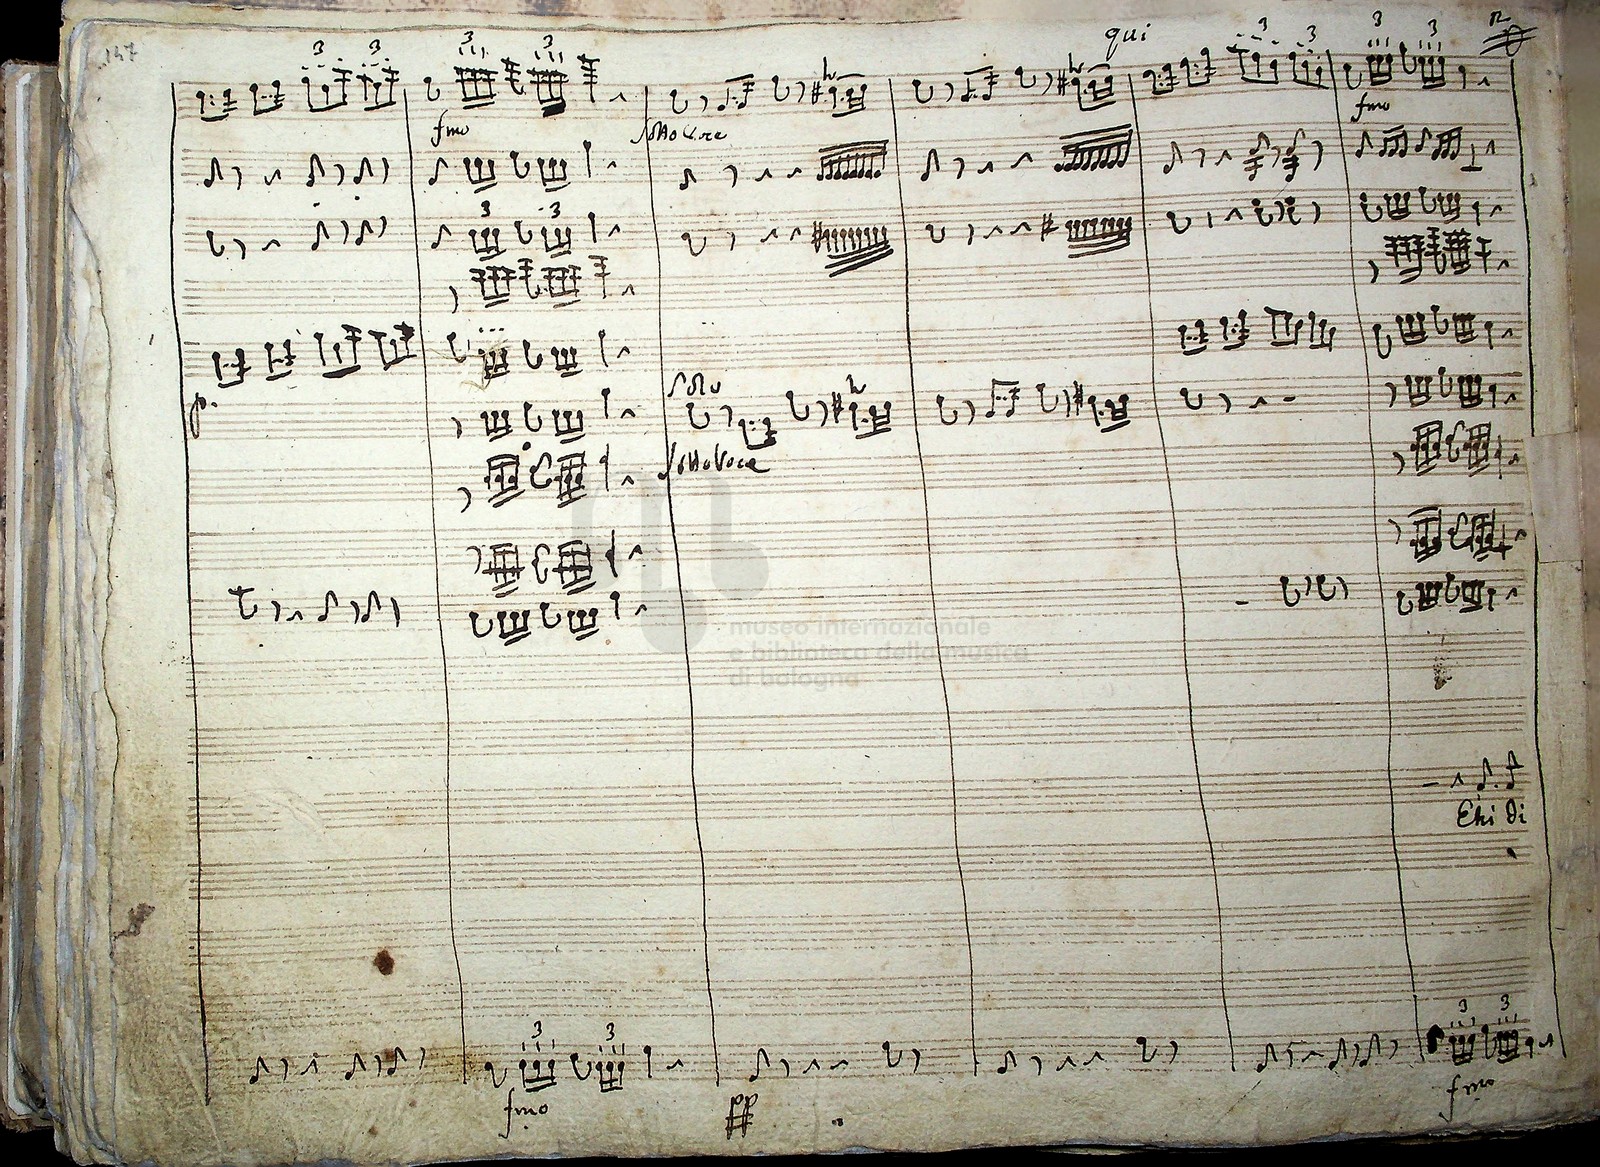 147
qui
3 3 3 3 3 3 3 3
fmo
fmo
Sotto Voce
3 3
p.
Solo
Sotto Voce
museo internazionale
e biblioteca della musica
di bologna
Ehi di
3 3 3 3
fmo
pp
fmo